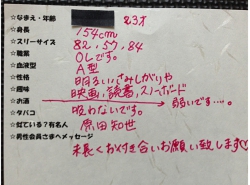 ☆なまえ・年齢 23才
☆身長 154cm
☆スリーサイズ 82,57,84
☆職業 OLです。
☆血液型 A型
☆性格 明るいさみしがりや
☆趣味 映画、読書、スノーボード
☆お酒 弱いです…。
☆タバコ 吸わないです。
☆似ている?有名人 原田知世
☆男性会員さまへメッセージ
末長くお付き合いお願い致します♡